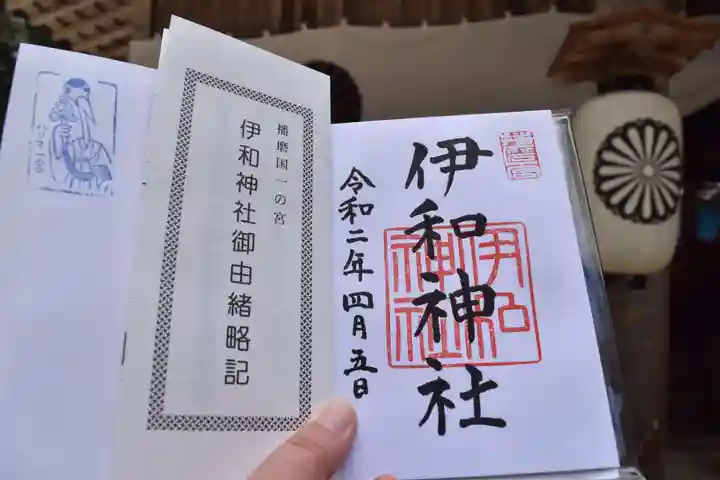 播磨国一の宮
伊和神社御由緒略記
伊和神社
令和二年四月五日
伊和
神社